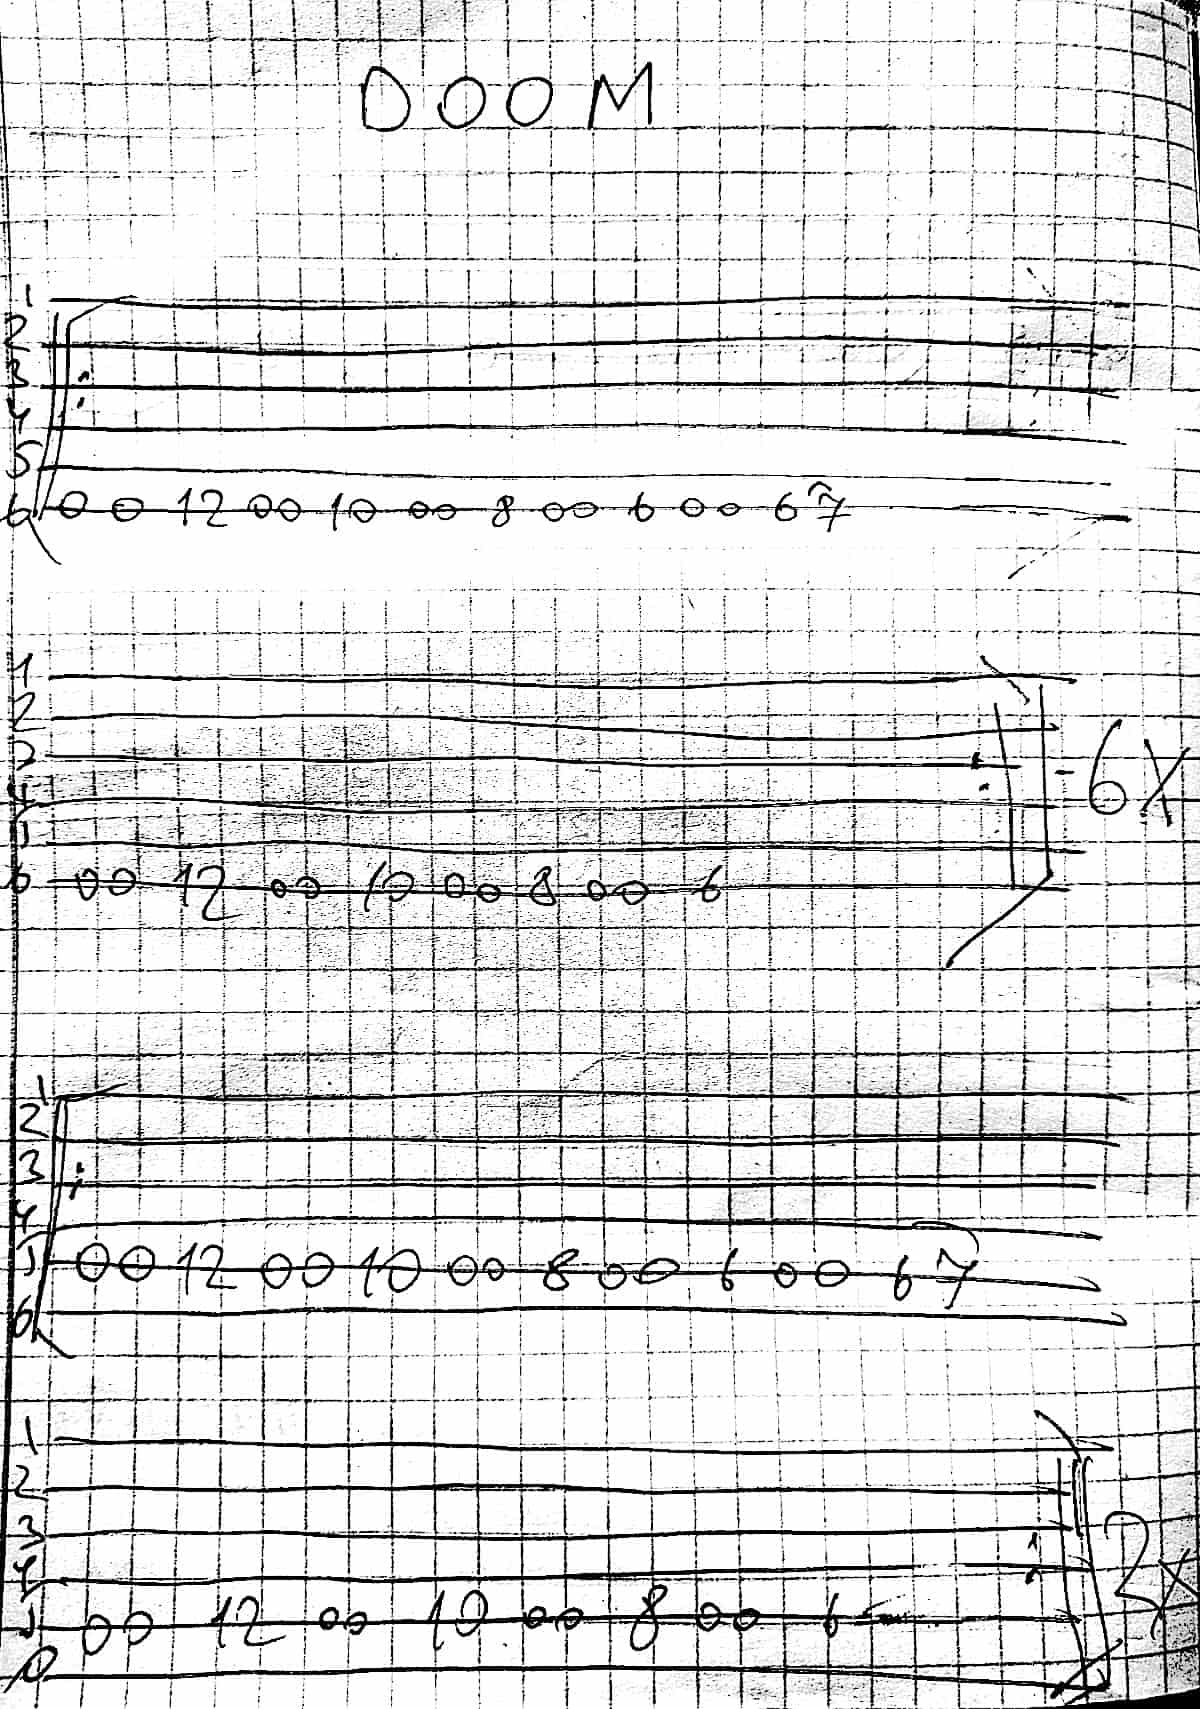 DOOM
1
2
3
4
5
6 0 0 12 0 0 10 0 0 8 0 0 6 0 0 6 7
1
2
3
4
5
6 0 0 12 0 0 10 0 0 8 0 0 6
- 6X
1
2
3
4
5 0 0 12 0 0 10 0 0 8 0 0 6 0 0 6 7
6
1
2
3
4
5 0 0 12 0 0 10 0 0 8 0 0 6
2x